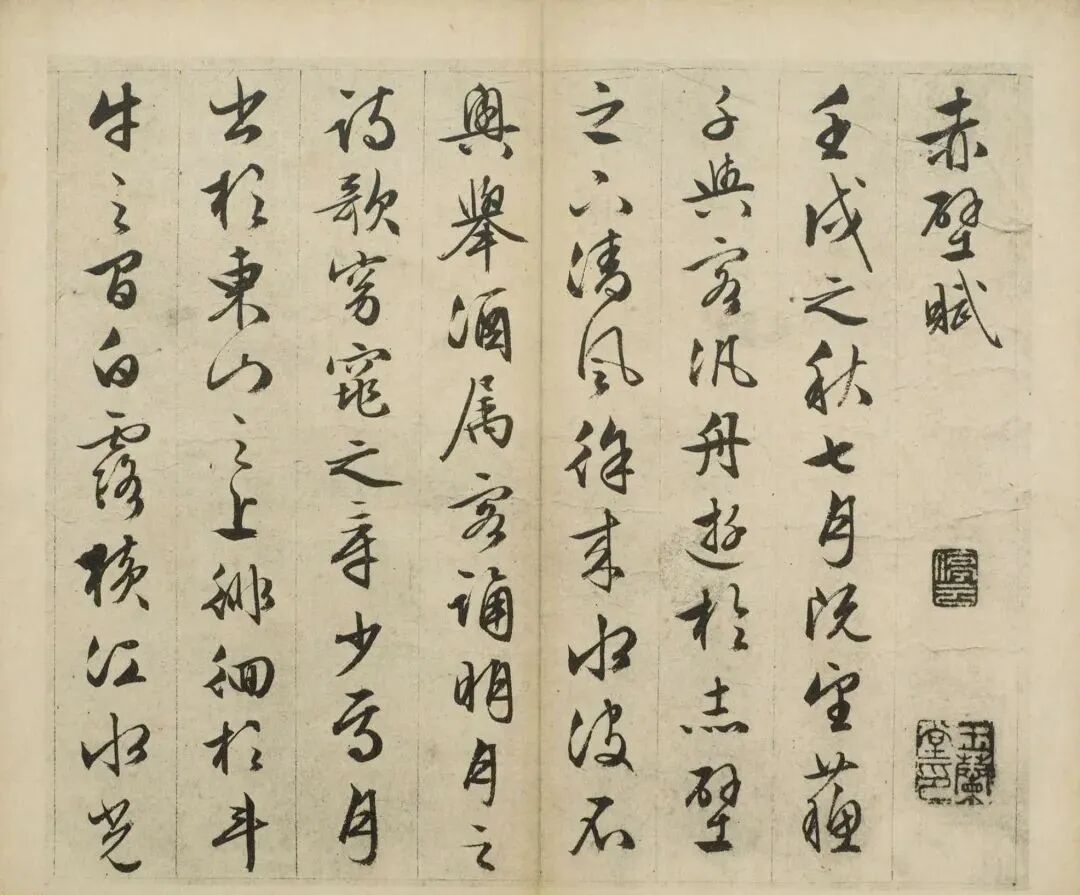 赤壁賦
停雲
玉蘭堂印
壬戌之秋七月既望蘇
子與客汎舟遊於赤壁
之下清風徐來水波不
興舉酒属客誦明月之
詩歌窈窕之章少焉月
出於東山之上徘徊於斗
牛之間白露橫江水光